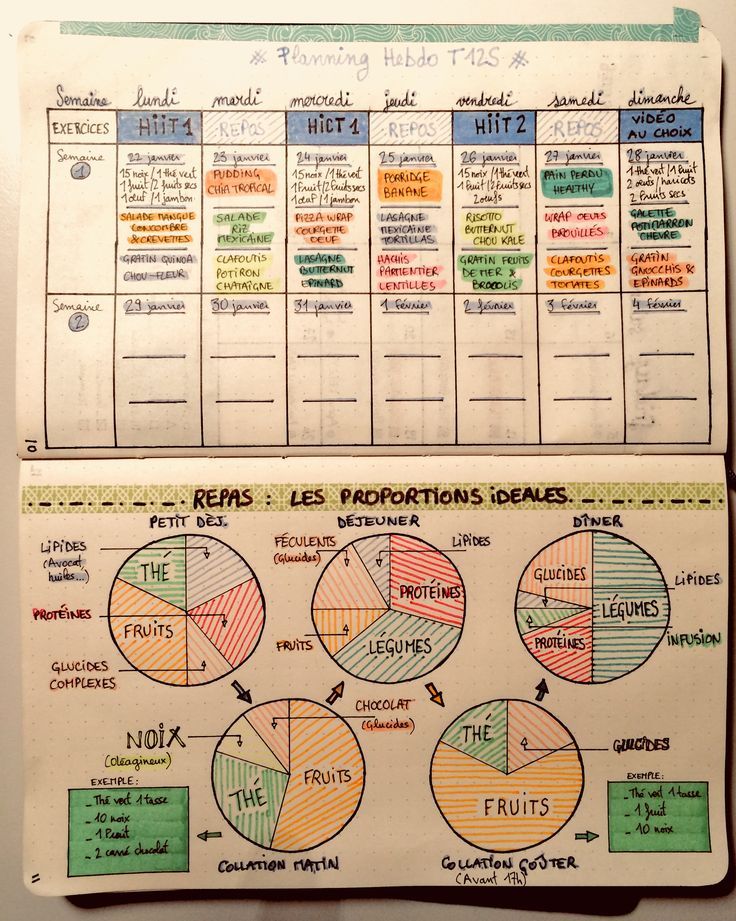 # Planning Hebdo T12S #
Semaine lundi mardi mercredi jeudi vendredi samedi dimanche
EXERCICES HiiT 1 REPOS HiCT 1 REPOS HiiT 2 REPOS VIDÉO AU CHOIX
Semaine 1
22 janvier
15 noix / 1 thé vert
1 fruit / 2 fruits secs
1 œuf / 1 jambon
SALADE MANGUE
CONCOMBRE
& CREVETTES
GRATIN QUINOA
CHOU-FLEUR
23 janvier
PUDDING
CHIA TROPICAL
SALADE
RIZ
MEXICAINE
CLAFOUTIS
POTIRON
CHATAÎGNE
24 janvier
15 noix / 1 thé vert
1 fruit / 2 fruits secs
1 œuf / 1 jambon
PIZZA WRAP
COURGETTE
OEUF
LASAGNE
BUTTERNUT
EPINARD
25 janvier
PORRIDGE
BANANE
LASAGNE
MEXICAINE
TORTILLAS
HACHIS
PARMENTIER
LENTILLES
26 janvier
15 noix / 1 thé vert
1 fruit / 2 fruits secs
2 œufs
RISOTTO
BUTTERNUT
CHOU KALE
GRATIN FRUITS
DE MER &
BROCOLIS
27 janvier
PAIN PERDU
HEALTHY
WRAP OEUFS
BROUILLÉS
CLAFOUTIS
COURGETTES
TOMATES
28 janvier
1 thé vert / 1 fruit
2 œufs / haricots
2 fruits secs
GALETTE
POTIMARRON
CHEVRE
GRATIN
GNOCCHIS &
EPINARDS
Semaine 2
29 janvier 30 janvier 31 janvier 1 février 2 février 3 février 4 février
10
REPAS : LES PROPORTIONS IDEALES
PETIT DÈJ.
LIPIDES
(Avocat,
huiles...)
THÉ
PROTÉINES
FRUITS
GLUCIDES
COMPLEXES
DÉJEUNER
FÉCULENTS
(Glucides)
LIPIDES
PROTÉINES
FRUITS
LÉGUMES
DÎNER
GLUCIDES
LIPIDES
LÉGUMES
PROTÉINES
INFUSION
NOIX
(Oléagineux)
CHOCOLAT
(Glucides)
FRUITS
THÉ
COLLATION MATIN
EXEMPLE :
- Thé vert 1 tasse
- 10 noix
- 1 Fruit
- 2 carré chocolat
THÉ
GLUCIDES
FRUITS
COLLATION GOÛTER
(Avant 17h)
EXEMPLE :
- Thé vert 1 tasse
- 1 fruit
- 10 noix
11